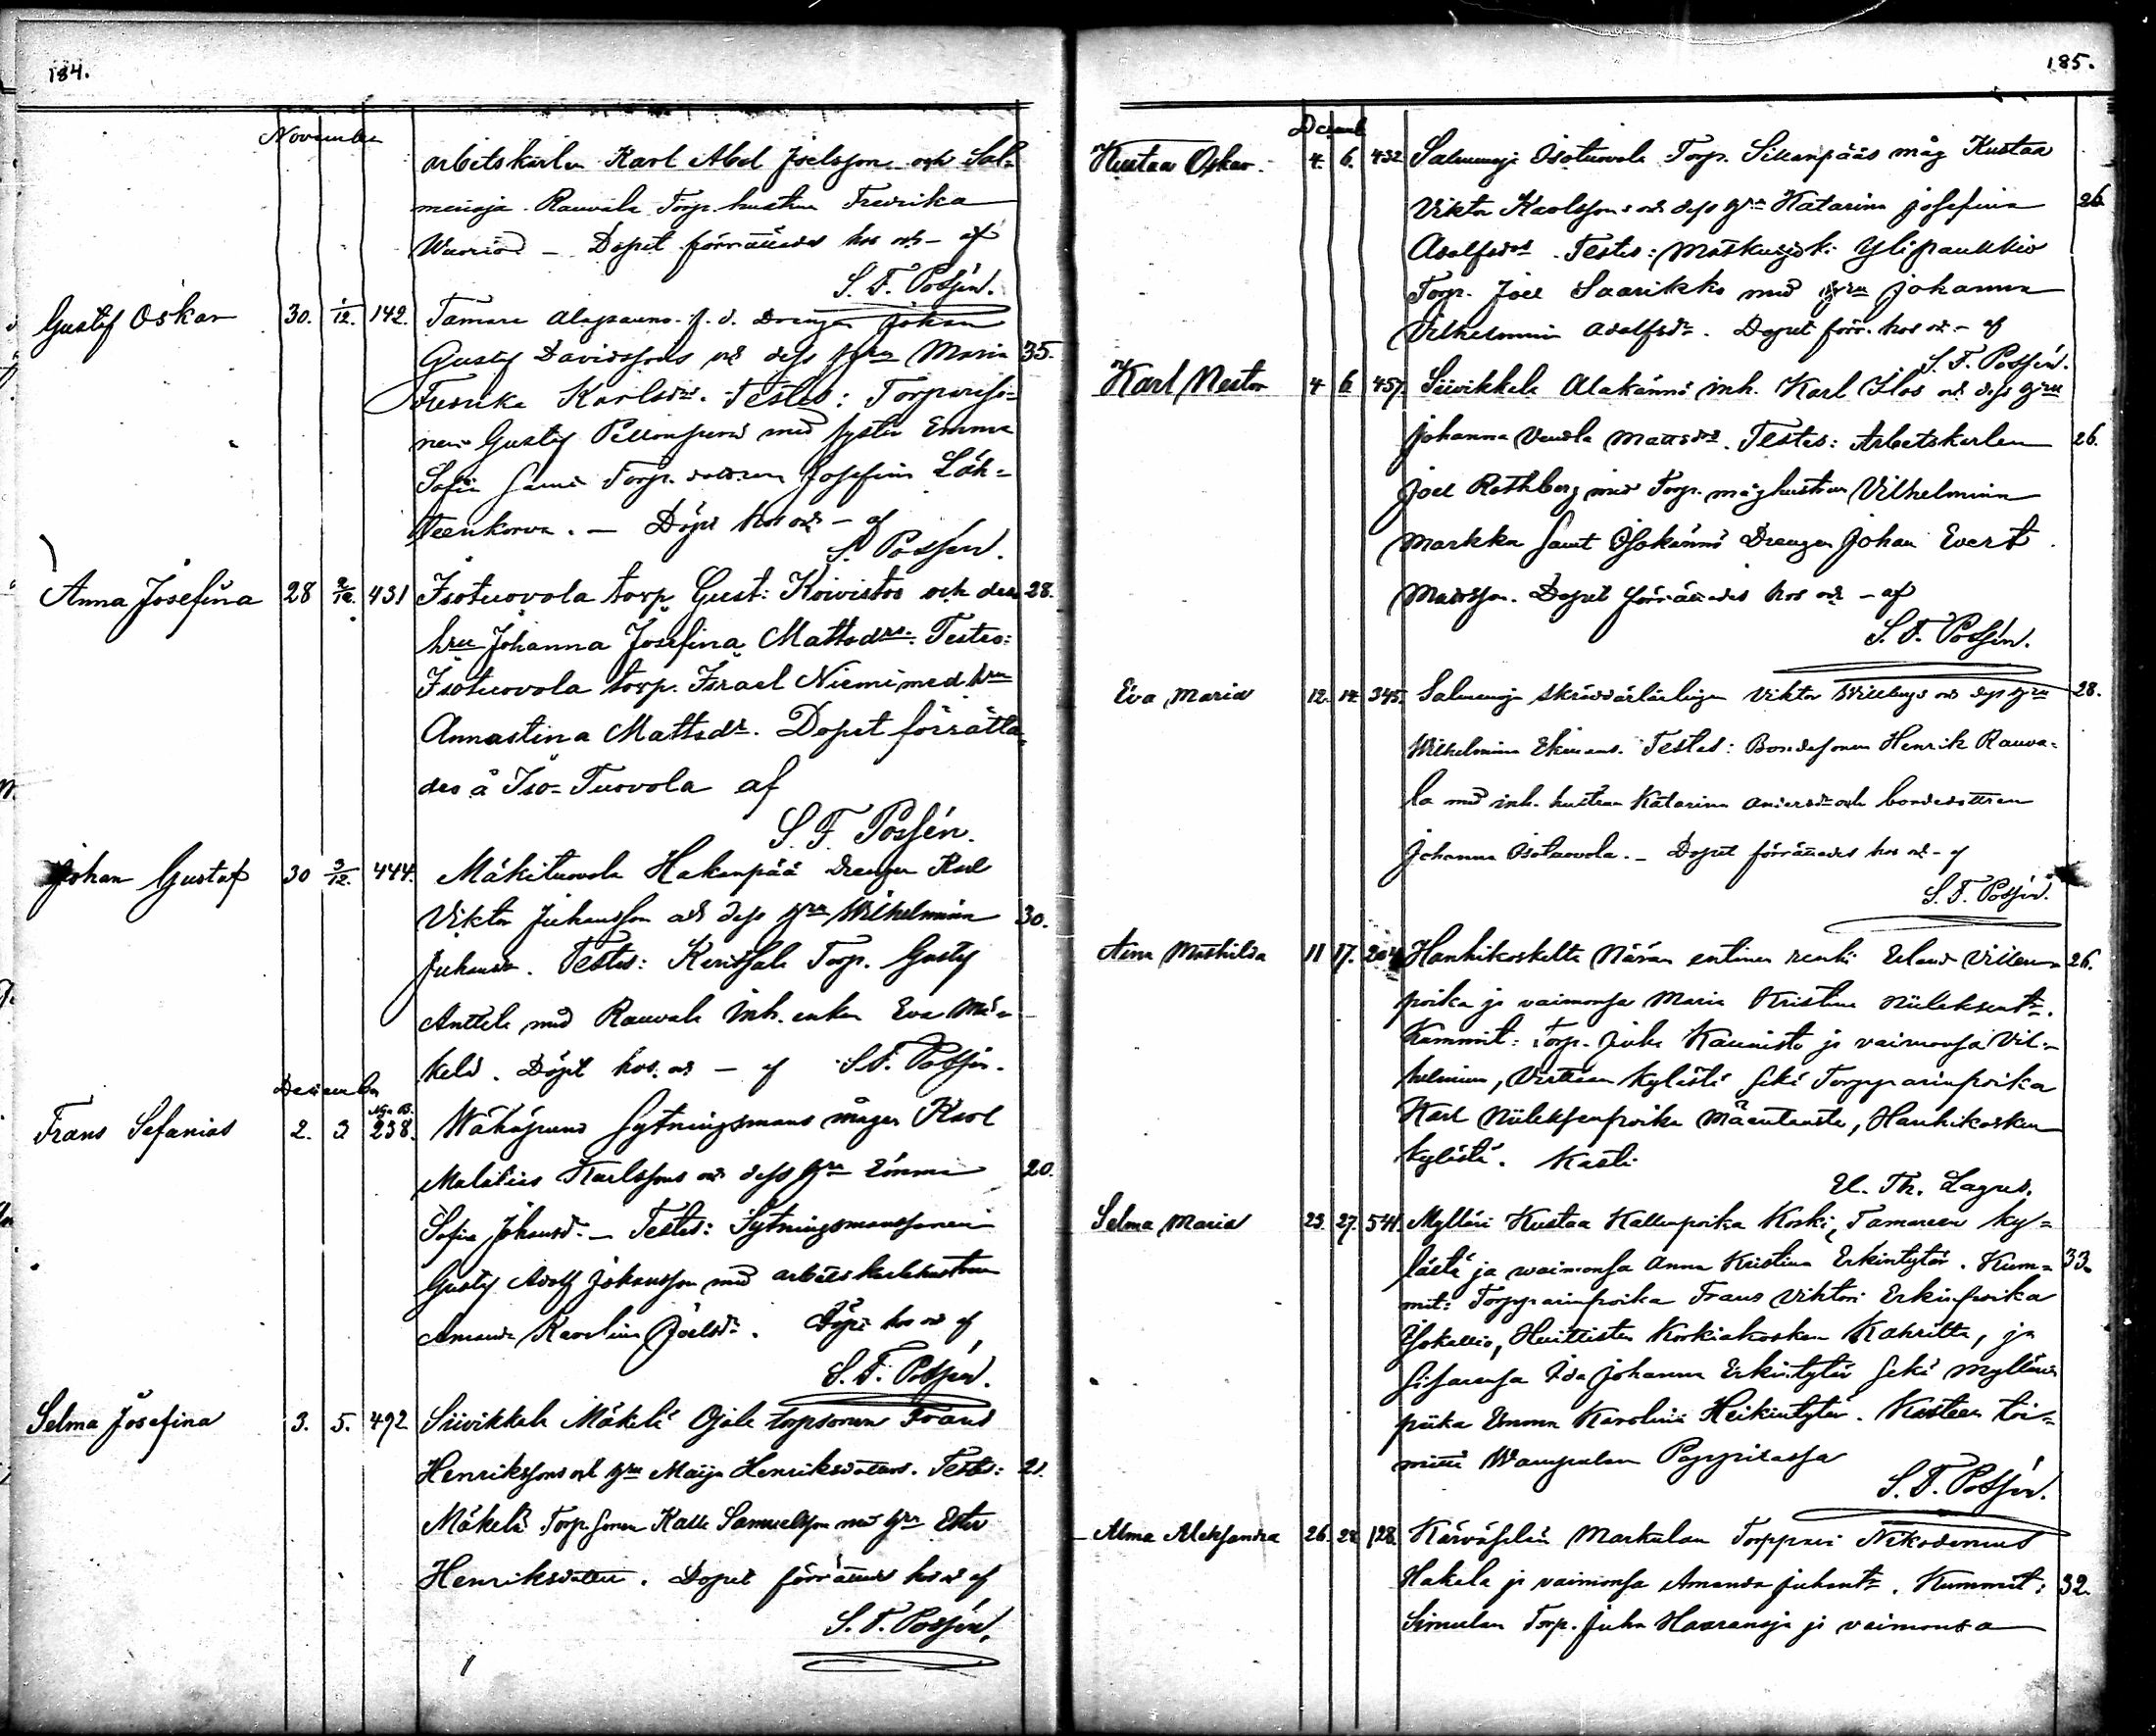 184.
November
arbetskarlen Karl Abel Joelsson och Sal-
menoja Rauvala Torp. hustrun Fredrika
Dopet förrättades hos oss - af
S. F. Possén.
Gustaf Oskar 30. 1/12. 142. Tamare f. d. Drengen Johan
Gustaf Davidssons och dess hru Maria 35.
Fredrika Karlsdr. Testes:
Gustaf med syster Emma
Sofia samt Torp. dottren Josefina Läh-
teenkorva. - Döpt hos oss - af
S. Possén.
Anna Josefina 28 2/12. 431 Isotuovola torp. Gust: Koivistos och dess 28.
hru Johanna Josefina Mattsdrs. Testes:
Isotuovola torp. Israel Niemi med hru
Annastina Mattsdr. Dopet förrätta-
des å Iso-Tuovola af
S. F. Possén.
Johan Gustaf 30 3/12. 444. Mäkituovola Hakanpää Drengen Karl
Viktor Juhansson och dess hru Wilhelmina 30.
Testes: Torp. Gustaf
Anttila med Rauvala Inh. enkan Eva Mä-
kelä. Döpt hos oss - af S. F. Possén.
December
Frans Sefanias 2. 3 238. Sytningsmans mågen Karl
Karlssons och dess hru Emma 20.
Sofia Johansdr. - Testes: Sytningsmanssonen
Gustaf Adolf Johansson med arbetskarlshustrun
Amanda Karolina Joelsdr. Döpt hos oss af
S. F. Possén.
Selma Josefina 3. 5. 492 Siivikkala Mäkelä Ojala torpsonen Frans
Henrikssons och hru Maija Henriksdotters. Testes: 21.
Mäkelä Torp. sonen Kalle Samuelsson med hru Ester
Henriksdotter. Dopet förrättades hos oss af
S. F. Possén.
185.
Decemb
Kustaa Oskar. 4. 6. 432 Salmenoja Isotuovola Torp. Sillanpääs måg Kustaa
Viktor Karlssons och dess hru Katarina Josefina 26
Adolfsdrs. Testes: Ylipaukkio
Torp. Joel Saarikko med hru Johanna
Vilhelmina Adolfsdr. Dopet förr. hos oss - af
S. F. Possén.
Karl Nestor 4 6 457. Siivikkala Alakänni inh. Karl Ilos och dess hru
Johanna Vendla Mattsdrs. Testes: Arbetskarlen 26.
Joel Rothberg med Torp. måghustrun Vilhelmina
Markka samt Isokänni Drengen Johan Evert
Mattsson. Dopet förrättades hos oss - af
S. F. Possén.
Eva Maria 12. 14. 345. Salmenoja skräddarlärlingen Viktor och dess hru 28.
Wilhelmina Ekmans. Testes: Bondesonen Henrik Rauva-
la med inh. hustrun Katarina Andersdr och bondedottren
Johanna Isotuovola. - Dopet förrättades hos oss - af
S. F. Possén.
Aina Mathilda 11 17. 204 Hanhikoskelta Närän entinen renki Erland Villen- 26.
poika ja vaimonsa Maria Kristina
Kummit: Torp. Juha Kaunisto ja vaimonsa Vil-
helmiina, kylästä sekä Torpparinpoika
Karl Mäentausta, Hanhikosken
kylästä. Kasti
El. Th. Lagus.
Selma Maria 23. 27. 541. Mylläri Kustaa Kallenpoika Koski, Tamareen ky-
lästä ja waimonsa Anna Kristina Erkintytär. Kum- 33.
mit: Torpparinpoika Frans Viktori Erkinpoika
Isokallio, Huittisten Korkiakosken Kahritta, ja
sisarensa Ida Johanna Erkintytär sekä Myllärin
piika Emma Karolina Heikintytär. Kasteen toi-
mitti Wampulan Pappilassa
S. F. Possén.
Alma Aleksandra 26. 28 128. Markulan Torppari Nikodemus
Hakala ja vaimonsa Amanda Juhantr. Kummit: 32.
Simulan Torp. Juha Haaranoja ja vaimonsa